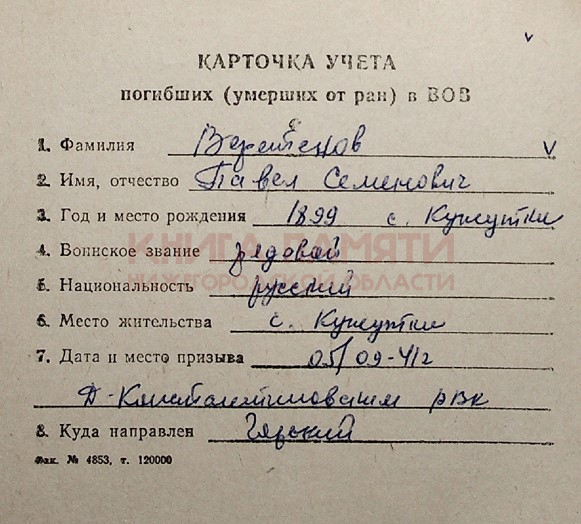 КАРТОЧКА УЧЕТА
погибших (умерших от ран) в ВОВ
1. Фамилия Веретенов
2. Имя, отчество Павел Семенович
3. Год и место рождения 1899 с. Кужутки
4. Воинское звание рядовой
5. Национальность русский
6. Место жительства с. Кужутки
7. Дата и место призыва 05/09-41г
Д-Константиновским рвк
8. Куда направлен
Фак. № 4853, т. 120000
КНИГА ПАМЯТИ
НИЖЕГОРОДСКОЙ ОБЛАСТИ